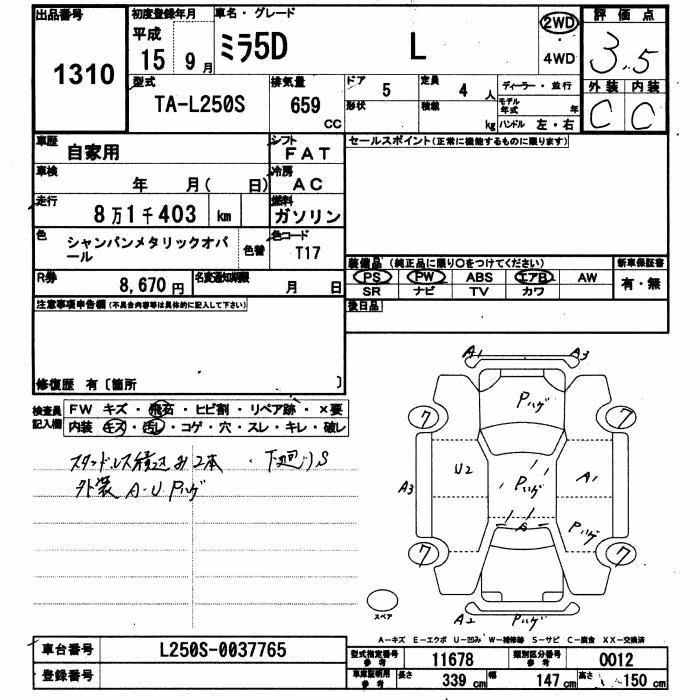 出品番号 1310
初度登録年月 平成 15 年 9 月
車名・グレード ミラ5D L
2WD ・ 4WD
評価点 3.5
外装 C 内装 C
型式 TA-L250S
排気量 659 CC
ドア 5
定員 4 人
ディーラー・並行
形状
積載 kg
モデル年式 年
ハンドル 左・右
車歴 自家用
シフト FAT
車検 年 月( 日)
冷房 AC
走行 8万1千403 km
燃料 ガソリン
色 シャンパンメタリックオパール
色替
色コード T17
R券 8,670 円
名変通知期限 月 日
セールスポイント(正常に機能するものに限ります)
装備品 (純正品に限り○をつけてください)
PS PW ABS エアB AW
SR ナビ TV カワ
新車保証書 有・無
後日品
注意事項申告欄(不具合内容等は具体的に記入して下さい)
修復歴 有〔箇所 〕
検査員記入欄
FW キズ・飛石・ヒビ割・リペア跡・×要
内装 キズ・汚れ・コゲ・穴・スレ・キレ・破レ
スタッドレス積込み2本 ・ 下廻りS
外装 A・U Pハゲ
A1 A3
Pハゲ
7 7
U2 Pハゲ A1
A3
Pハゲ
7 7
A2 Pハゲ
スペア
A-キズ E-エクボ U-凹み W-補修跡 S-サビ C-腐食 XX-交換済
車台番号 L250S-0037765
登録番号
型式指定番号 参考 11678
類別区分番号 参考 0012
車庫証明用 参考 長さ 339 cm 幅 147 cm 高さ 150 cm